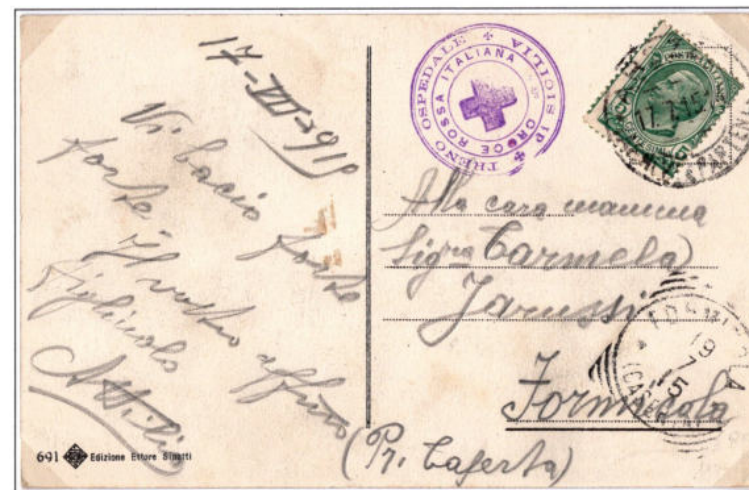 17-VII-915
Vi bacio forte
forte, Il vostro affmo
figliuolo
Attilio
691 Edizione Ettore
TRENO OSPEDALE
SICILIA
CROCE ROSSA ITALIANA
17.7.15
Alla cara mamma
Sigra Carmela
Jarussi
Formicola
(Pr. Caserta)
FORMICOLA
19
7
15
(CASERTA)